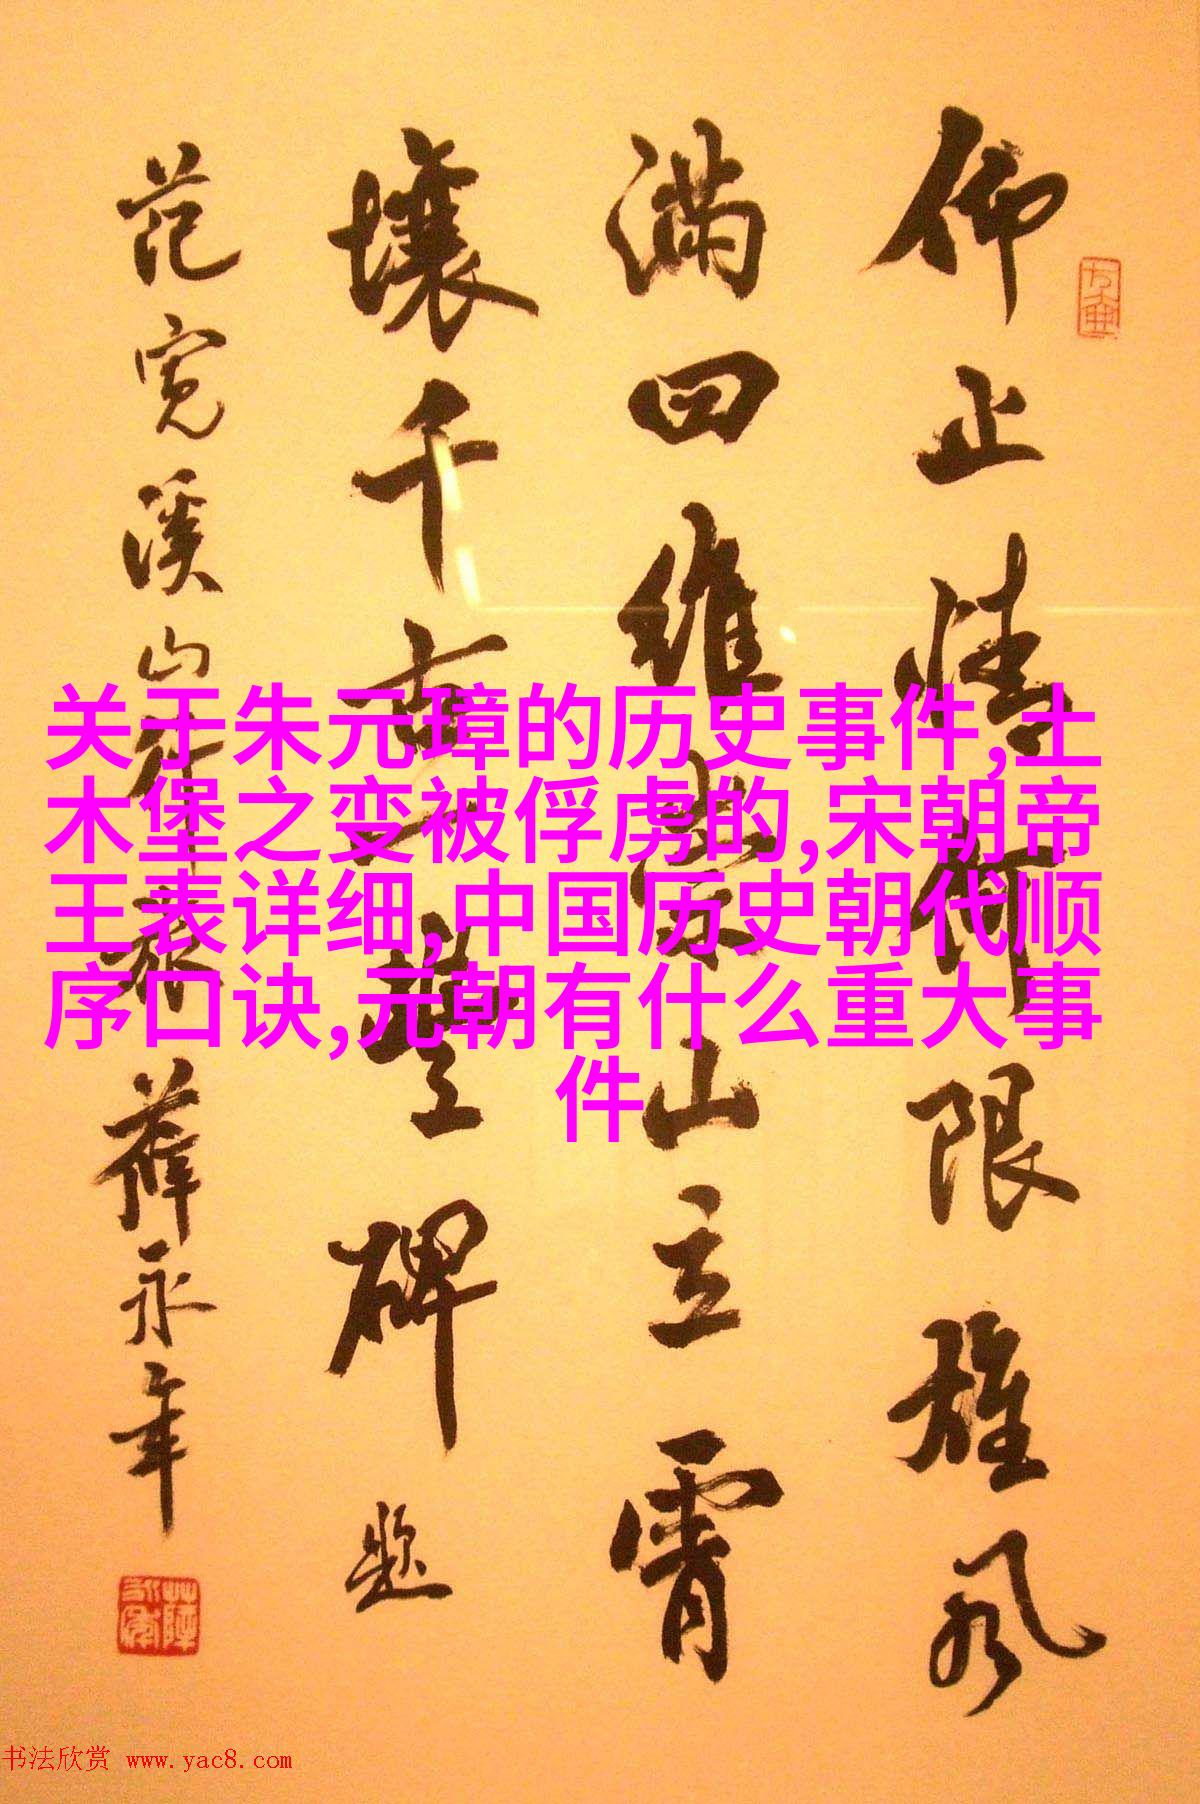 仰止情何限雄风
满四维崇山立霄
壤千古一豐碑题
范宽溪山行旅 薛永年
关于朱元璋的历史事件,土
木堡之变被俘虏的,宋朝帝
王表详细,中国历史朝代顺
序口诀,元朝有什么重大事
件
书法欣赏 www.yac8.com